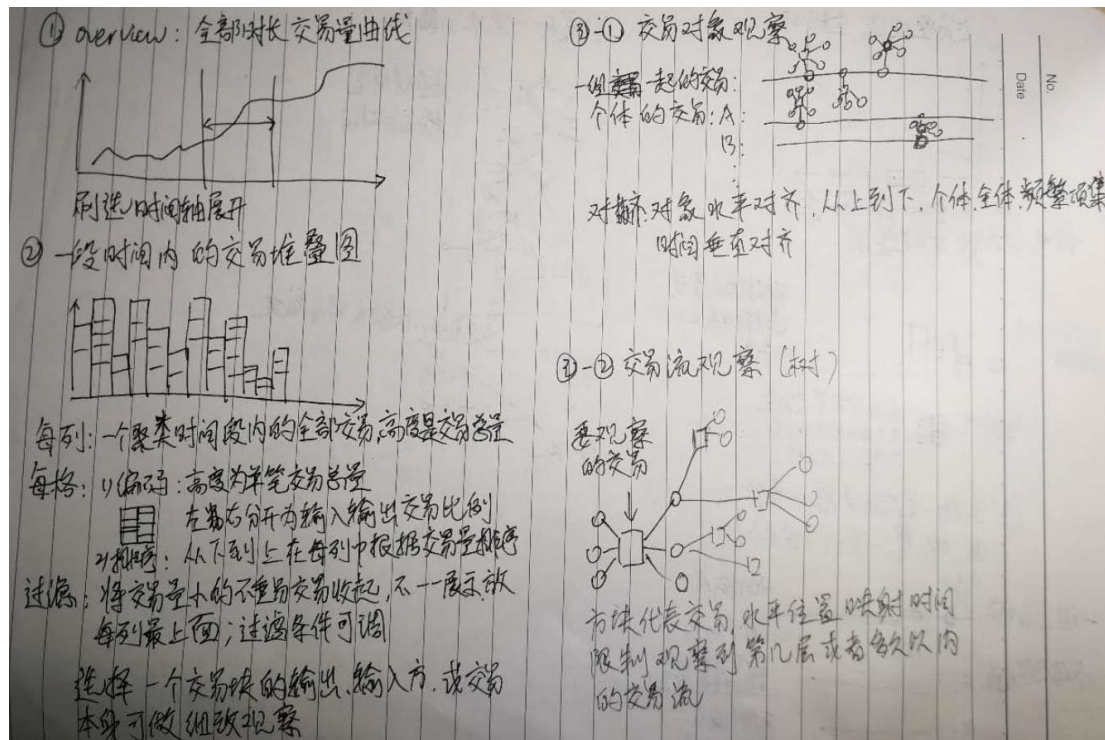 ① overview: 全部时长交易量曲线
刷选，时间轴展开
② 一段时间内的交易堆叠图
每列: 一个聚类时间段内的全部交易,高度是交易总量
每格: 1) 编码: 高度为单笔交易总量
左右分开为输入输出交易比例
2) 排序: 从下到上在每列中根据交易量排序
过滤: 将交易量小的不重要交易收起,不一一展示,放
每列最上面; 过滤条件可调
选择一个交易块的输出、输入方,或交易
本身可做细致观察
③-① 交易对象观察
一组 一起的交易:
个体的交易: A:
B:
对齐: 对象水平对齐,从上到下,个体,全体,频繁项集
时间垂直对齐
③-② 交易流观察 (树)
要观察
的交易
方块代表交易,水平位置映射时间
限制观察到第几层或者多久以内
的交易流
No.
Date